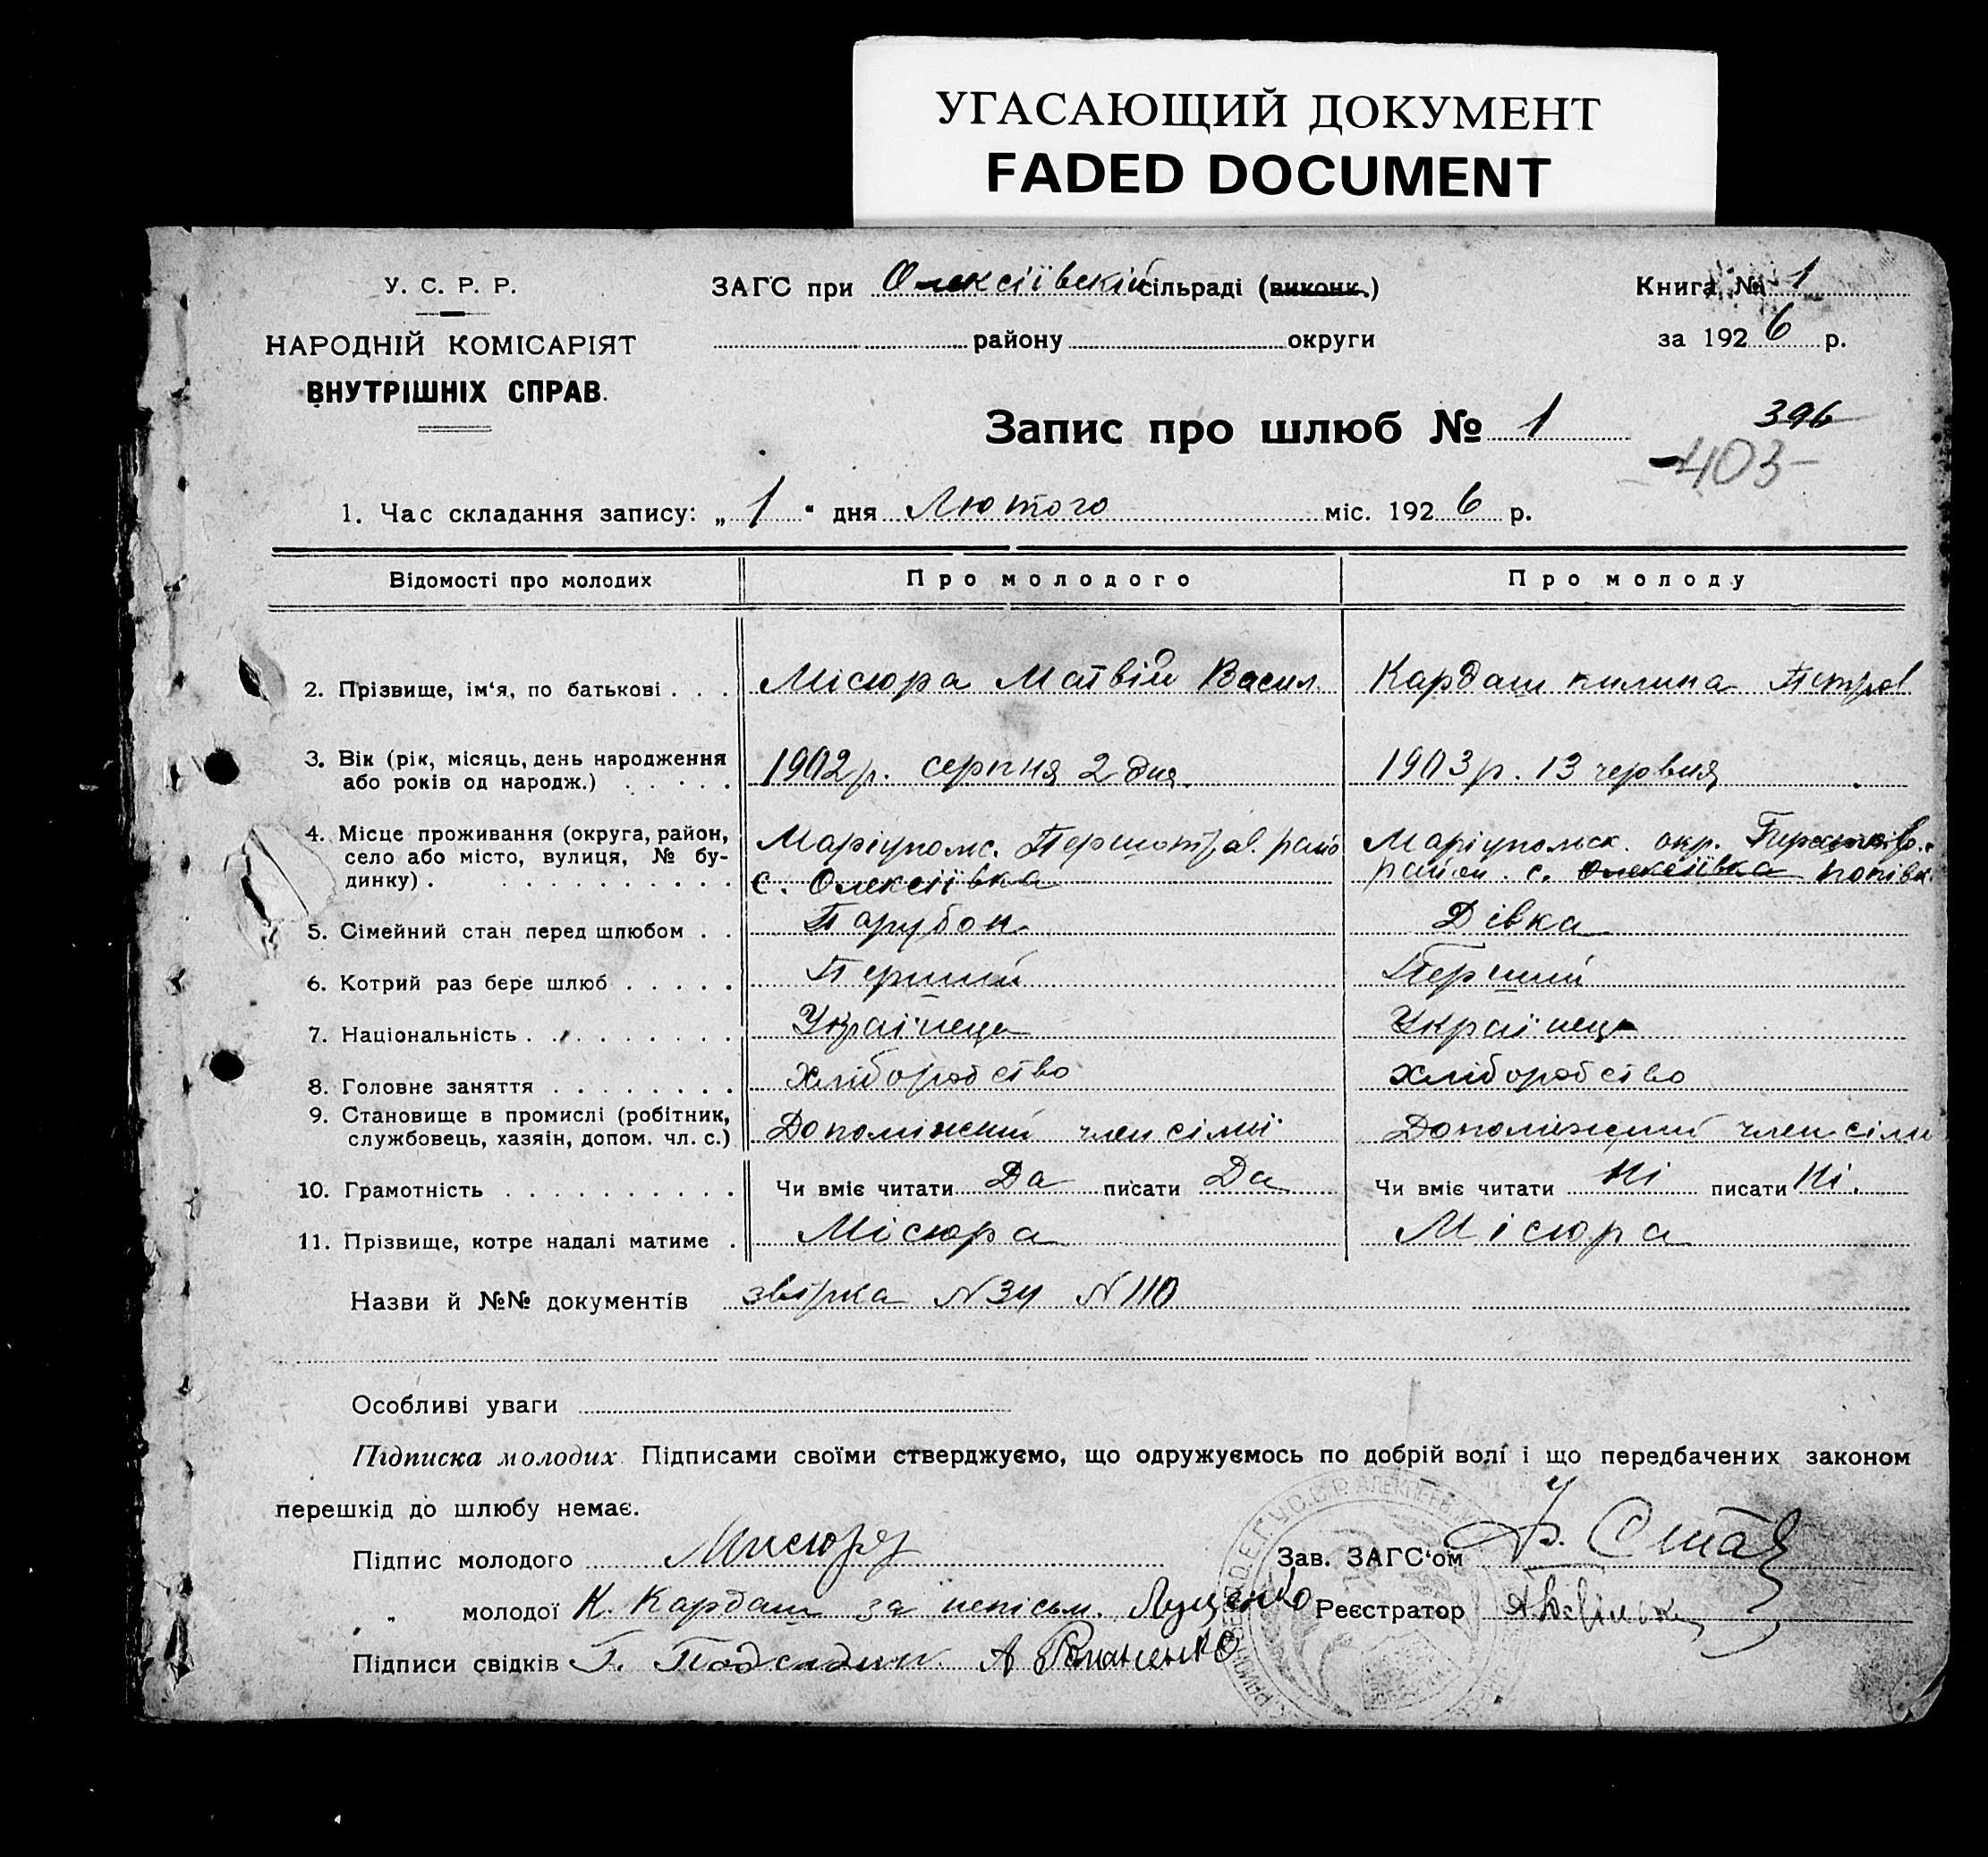 УГАСАЮЩИЙ ДОКУМЕНТ
FADED DOCUMENT
У. С. Р. Р.
НАРОДНІЙ КОМІСАРІЯТ
ВНУТРІШНІХ СПРАВ.
ЗАГС при Олексіївскій сільраді (виконк.)
району округи
Книга № 1
за 1926 р.
Запис про шлюб № 1
396
-403-
1. Час складання запису: „1“ дня Лютого міс. 1926 р.
Відомості про молодих Про молодого Про молоду
2. Прізвище, ім'я, по батькові . . . Місюра Матвій Васил. Кардаш килина Петров
3. Вік (рік, місяць, день народження 1902 р. серпня 2 дня 1903 р. 13 червня
або років од народж.) . . . . .
4. Місце проживання (округа, район, Маріуполс. Першотрав. райо Маріупольск. окр.
село або місто, вулиця, № бу- с. Олексіївка район. с. Олексіївка
динку) . . . . . . . . . . .
5. Сімейний стан перед шлюбом . . Парубок Дівка
6. Котрий раз бере шлюб . . . . . Перший Перший
7. Національність . . . . . . . . . Українець Українець
8. Головне заняття . . . . . . . . Хліборобство хліборобство
9. Становище в промислі (робітник, Допоміжний член сімї Допоміжний член сімї
службовець, хазяїн, допом. чл. с.)
10. Грамотність . . . . . . . . . . Чи вміє читати Да писати Да Чи вміє читати Ні писати Ні.
11. Прізвище, котре надалі матиме . Місюра Місюра
Назви й №№ документів звірка N 34 N 110
Особливі уваги
Підписка молодих. Підписами своїми стверджуємо, що одружуємось по добрій волі і що передбачених законом
перешкід до шлюбу немає.
Підпис молодого Мисюра Зав. ЗАГС'ом
„ молодої К. Кардаш за непісьм. Луценко Реєстратор
Підписи свідків Г. А